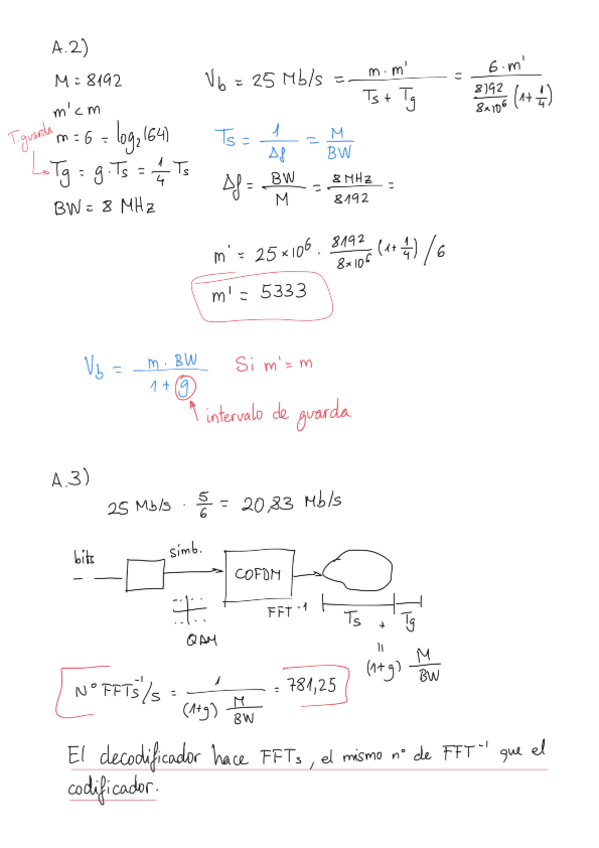 A.2)
M = 8192
m' < m
T. guarda
m = 6 = log₂(64)
Tg = g·Ts = 1/4 Ts
BW = 8 MHz
Vb = 25 Mb/s = m·m' / (Ts + Tg) = 6·m' / (8192/8×10⁶ (1+1/4))
Ts = 1/Δf = M/BW
Δf = BW/M = 8 MHz/8192 =
m' = 25×10⁶ · 8192/8×10⁶ (1+1/4) / 6
m' = 5333
Vb = m·BW / (1+g) Si m' = m
intervalo de guarda
A.3)
25 Mb/s · 5/6 = 20,83 Mb/s
bits
simb.
QAM
COFDM
FFT⁻¹
Ts + Tg
=
(1+g) M/BW
Nº FFTs⁻¹/s = 1 / ((1+g) M/BW) = 781,25
El decodificador hace FFTs, el mismo nº de FFT⁻¹ que el
codificador.